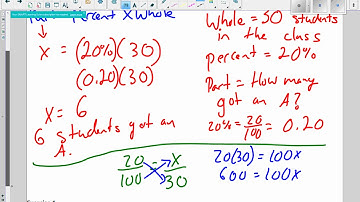 Percent X Whole
Whole = 30 students
in the class
X = (20%)(30)
percent = 20%
(0.20)(30)
Part = How many
got an A?
X = 6
20% = 20/100 = 0.20
6 students got an
A.
20/100 = X/30
20(30) = 100x
600 = 100x